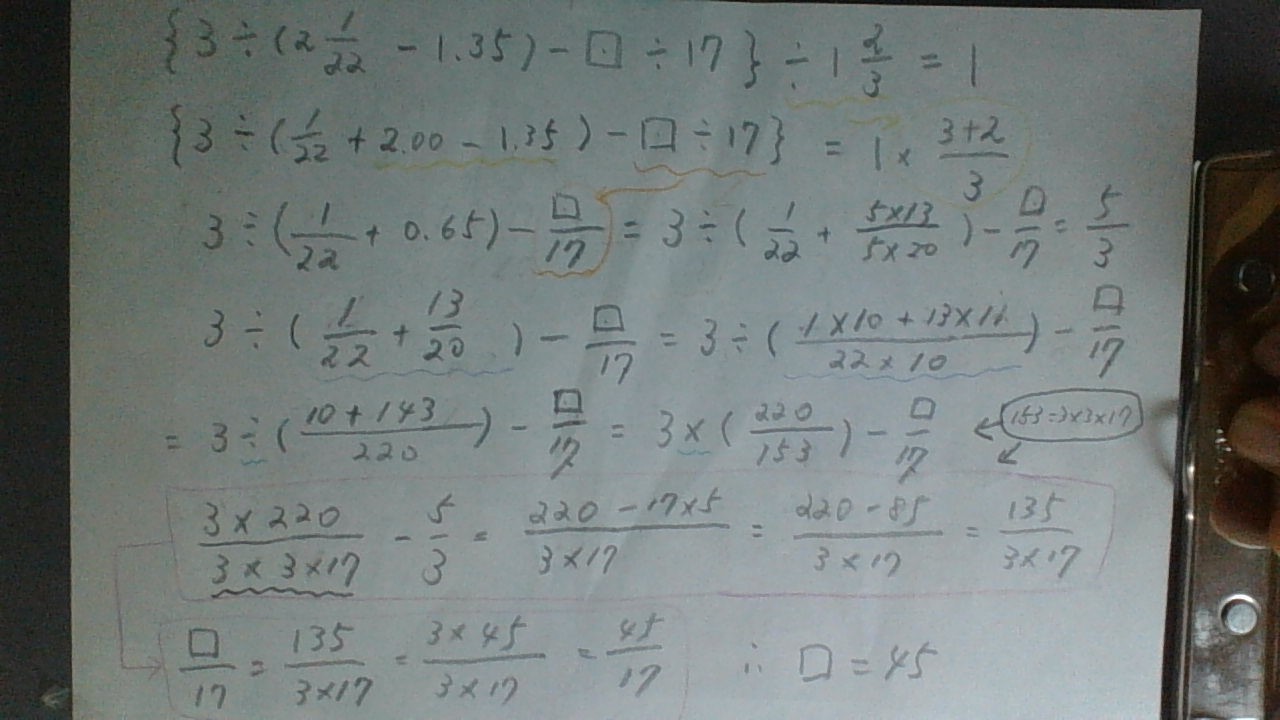 {3 ÷ (2 1/22 - 1.35) - □ ÷ 17} ÷ 1 2/3 = 1
{3 ÷ (1/22 + 2.00 - 1.35) - □ ÷ 17} = 1 × (3+2)/3
3 ÷ (1/22 + 0.65) - □/17 = 3 ÷ (1/22 + (5×13)/(5×20)) - □/17 = 5/3
3 ÷ (1/22 + 13/20) - □/17 = 3 ÷ ((1×10 + 13×11)/(22×10)) - □/17
= 3 ÷ ((10 + 143)/220) - □/17 = 3 × (220/153) - □/17 ← 153=3×3×17
(3×220)/(3×3×17) - 5/3 = (220 - 17×5)/(3×17) = (220 - 85)/(3×17) = 135/(3×17)
□/17 = 135/(3×17) = (3×45)/(3×17) = 45/17 ∴ □ = 45